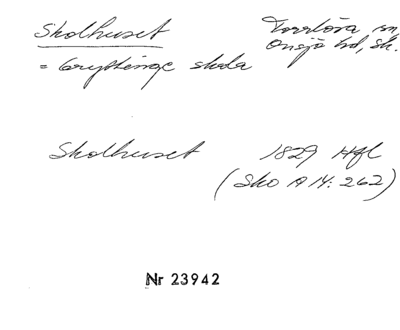 Skolhuset Torrlösa sn
Onsjö hd, Sk.
= Gryttinge skola
Skolhuset 1829 Hfl
(Sko A IV: 262)
Nr 23942